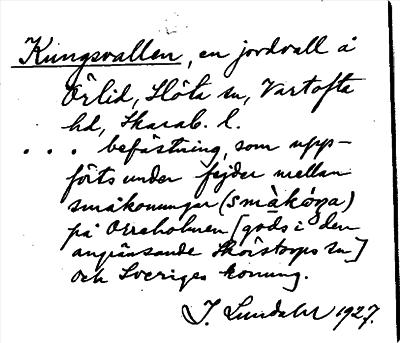 Kungsvallen, en jordvall å
Örlid, Slöta sn, Vartofta
hd, Skarab. l.
. . . befästning, som upp-
förts under fejder mellan
småkonungar (småkóga)
på Orreholmen [gods i den
angränsande Skörstorps sn]
och Sveriges konung.
J. Lundahl 1927.